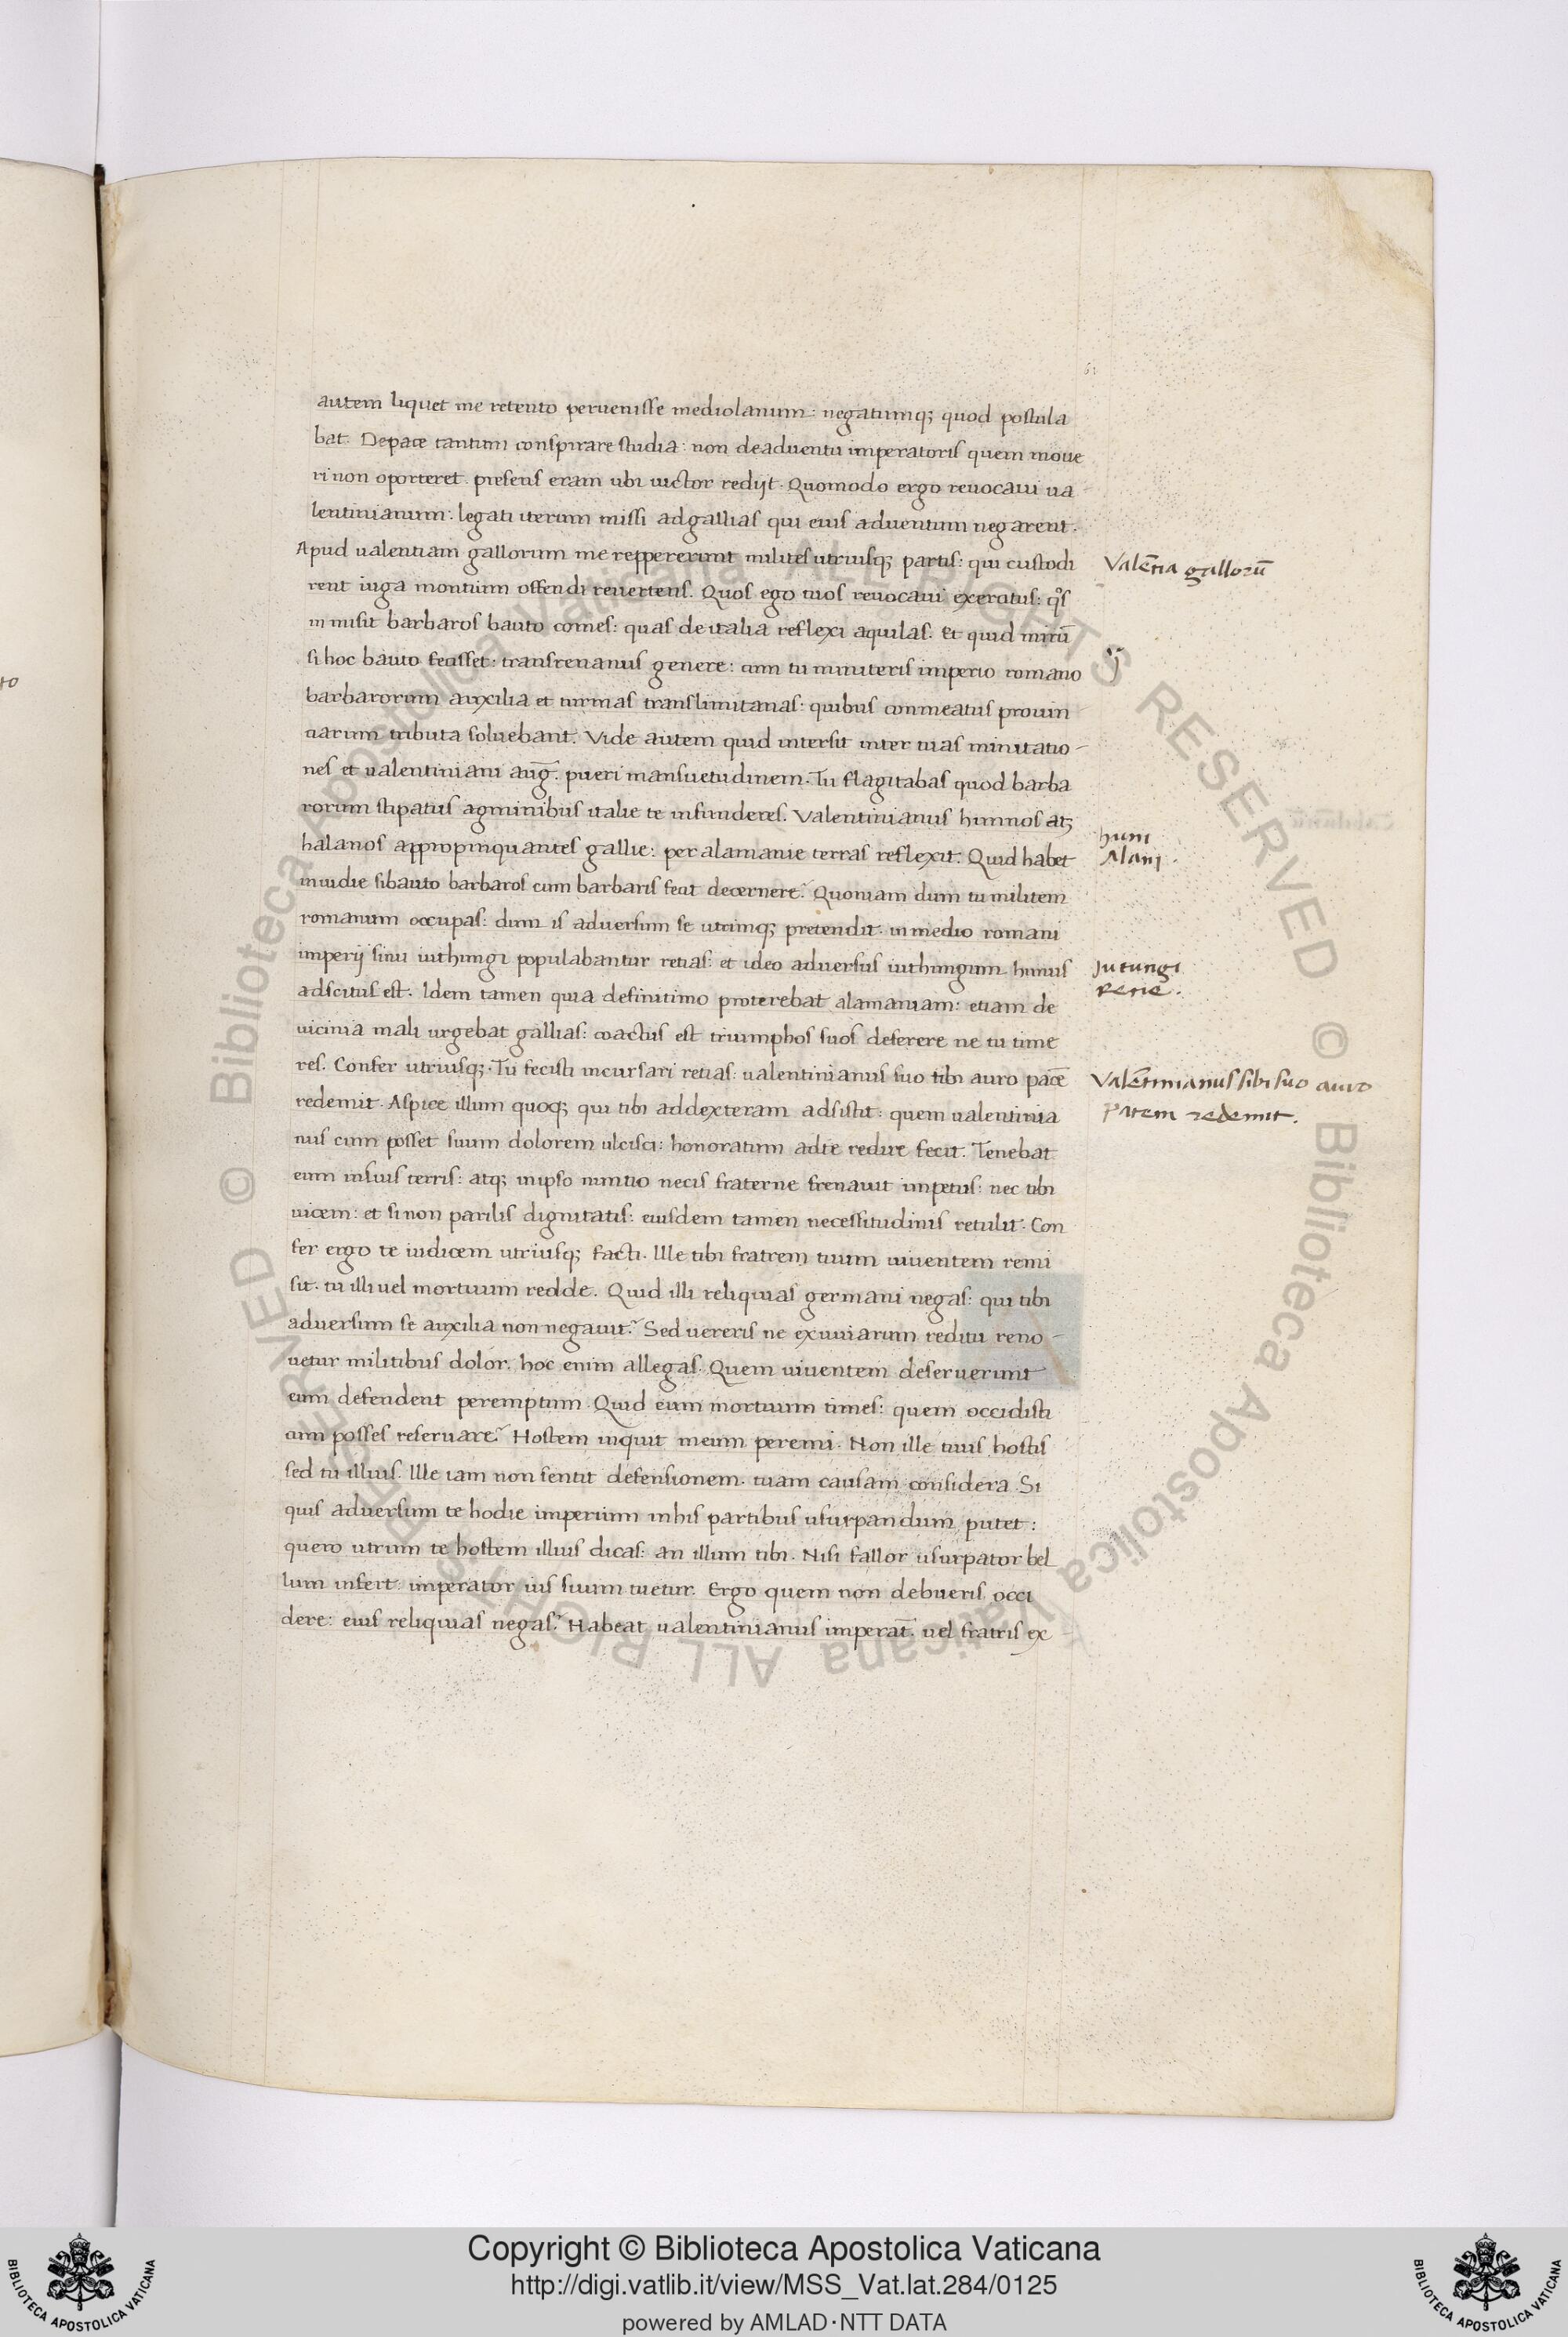 61
autem liquet me retento peruenisse mediolanum: negatumq; quod postula
bat. De pace tantum conspirare studia: non de aduentu imperatoris quem moue
ri non oporteret. presens eram ubi uictor redijt. Quomodo ergo reuocaui ua
lentinianum: legati iterum missi ad gallias qui eius aduentum negarent.
Apud ualentiam gallorum me reppererunt milites utriusq; partis: qui custodi
rent iuga montium offendi reuertens. Quos ego tuos reuocaui exercitus: qs
inmisit barbaros bauto comes: quas de italia reflexi aquilas. Et quid mirū
si hoc bauto fecisset: transrenanus genere: cum tu miniteris imperio romano
barbarorum auxilia et turmas translimitanas: quibus commeatus prouin
ciarum tributa soluebant. Vide autem quid intersit inter tuas minitatio-
nes et ualentiniani aug̅. pueri mansuetudinem. Tu flagitabas quod barba
rorum stipatus agminibus italie te infunderes. Valentinianus hunnos atq;
halanos appropinquantes gallie: per alamanie terras reflexit. Quid habet
inuidie si bauto barbaros cum barbaris fecit decernere? Quoniam dum tu militem
romanum occupas: dum is aduersum se utrimq; pretendit. in medio romani
imperij sinu iuthungi populabantur retias: et ideo aduersus iuthungum hunus
adscitus est. Idem tamen quia de finitimo proterebat alamaniam: etiam de
uicinia mali urgebat gallias: coactus est triumphos suos deserere ne tu time
res. Confer utriusq;. Tu fecisti incursari retias: ualentinianus suo tibi auro pacē
redemit. Aspice illum quoq; qui tibi ad dexteram adsistit: quem ualentinia
nus cum posset suum dolorem ulcisci: honoratum ad te redire fecit. Tenebat
eum in suis terris: atq; in ipso nuntio necis fraterne frenauit impetus: nec tibi
uicem: et si non parilis dignitatis: eiusdem tamen necessitudinis retulit. Con
fer ergo te iudicem utriusq; facti. Ille tibi fratrem tuum uiuentem remi
sit. tu illi uel mortuum redde. Quid illi reliquias germani negas: qui tibi
aduersum se auxilia non negauit? Sed uereris ne exuuiarum reditu reno-
uetur militibus dolor. hoc enim allegas. Quem uiuentem deseruerunt
eum defendent peremptum. Quid eum mortuum times: quem occidisti
cum posses reseruare? Hostem inquit meum peremi. Non ille tuus hostis
sed tu illius. Ille iam non sentit defensionem. tuam causam considera. Si
quis aduersum te hodie imperium in his partibus usurpandum putet:
quero utrum te hostem illius dicas: an illum tibi. Nisi fallor usurpator bel
lum infert. imperator ius suum tuetur. Ergo quem non debueris occi
dere: eius reliquias negas? Habeat ualentinianus imperat̅. uel fratris ex
Valētia gallorū
huni
Alani.
Jutungi
Retie.
Valētinianus sibi suo auro
Pacem redemit.
to
© Biblioteca Apostolica Vaticana ALL RIGHTS RESERVED © Biblioteca Apostolica Vaticana ALL RIGHTS RESERVED
Copyright © Biblioteca Apostolica Vaticana
http://digi.vatlib.it/view/MSS_Vat.lat.284/0125
powered by AMLAD·NTT DATA
BIBLIOTECA APOSTOLICA VATICANA
BIBLIOTECA APOSTOLICA VATICANA